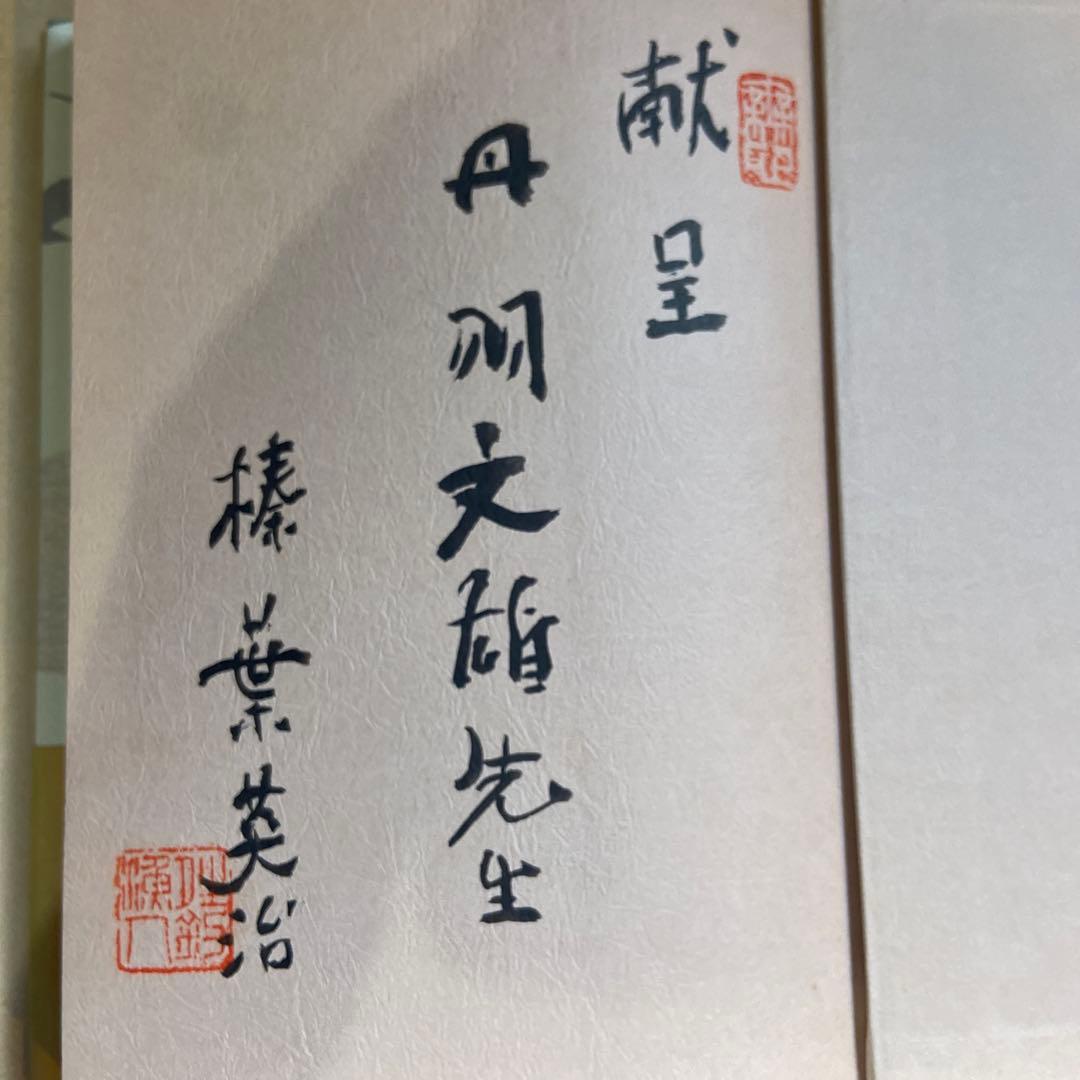 献呈
丹羽文雄先生
榛葉英治